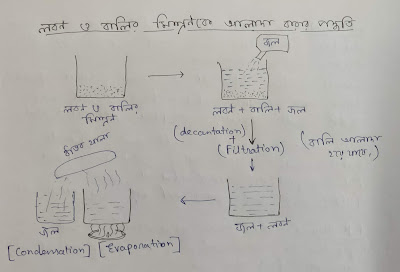 লবণ ও বালির মিশ্রণকে আলাদা করার পদ্ধতি
জল
লবণ ও বালির
মিশ্রণ
লবণ + বালি + জল
(decantation)
+
(Filtration)
(বালি আলাদা
হয়ে যাবে।)
ঠান্ডা থালা
জল + লবণ
জল
[Condensation] [Evaporation]